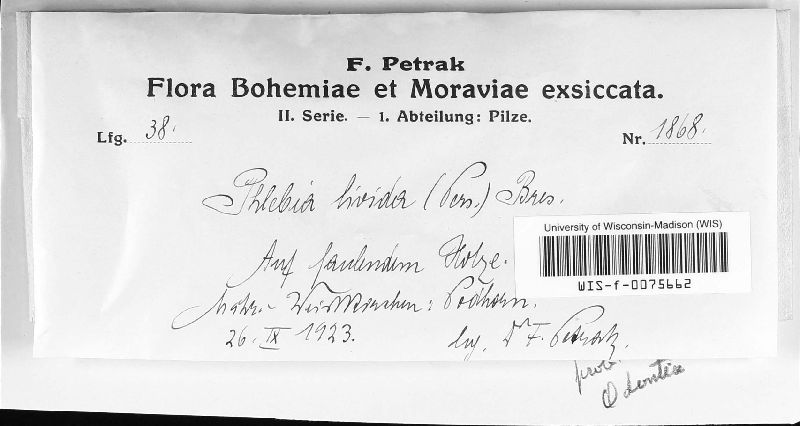 F. Petrak
Flora Bohemiae et Moraviae exsiccata.
II. Serie. — 1. Abteilung: Pilze.
Lfg. 38.
Nr. 1868.
Phlebia livida (Pers.) Bres.
University of Wisconsin-Madison (WIS)
WIS-f-0075662
Auf faulendem Holze.
Mähr.-Weisskirchen: Podhorn.
26. IX 1923.
leg. Dr F. Petrak.
prob.
Odontia